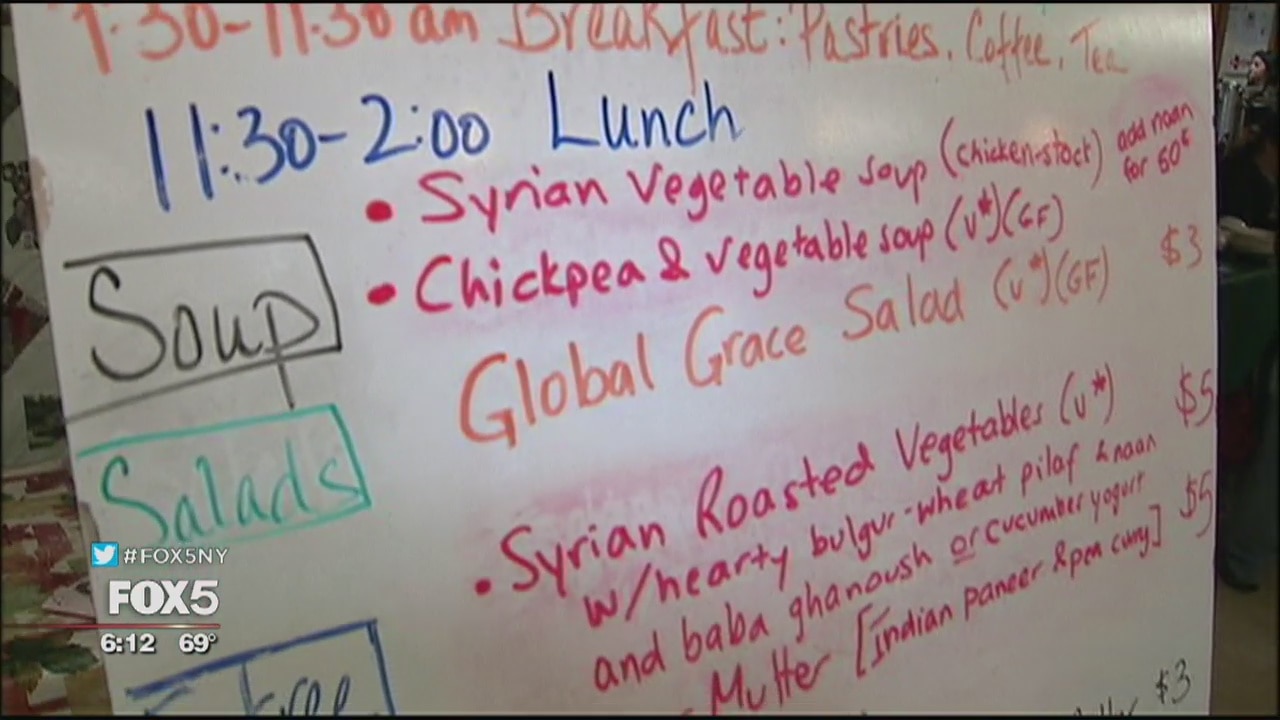 7:30-11:30 am Breakfast: Pastries, Coffee, Tea
11:30-2:00 Lunch
• Syrian Vegetable soup (chicken-stock) add naan for 50¢
• Chickpea & vegetable soup (V*)(GF)
Soup
Global Grace Salad (V*)(GF) $3
Salads
• Syrian Roasted Vegetables (V*) $5
w/hearty bulgur-wheat pilaf & naan
and baba ghanoush or cucumber yogurt
Mutter [Indian paneer & pea curry] $5
$3
#FOX5NY
FOX5
6:12 69°